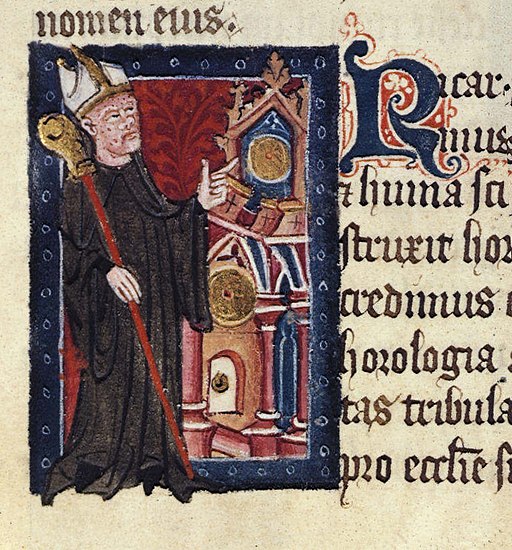 nomen eius.
Ricar
mus
⁊ huma sci
struxit hor
credimus
horologia
tas tribula
pro eccl̄ie s